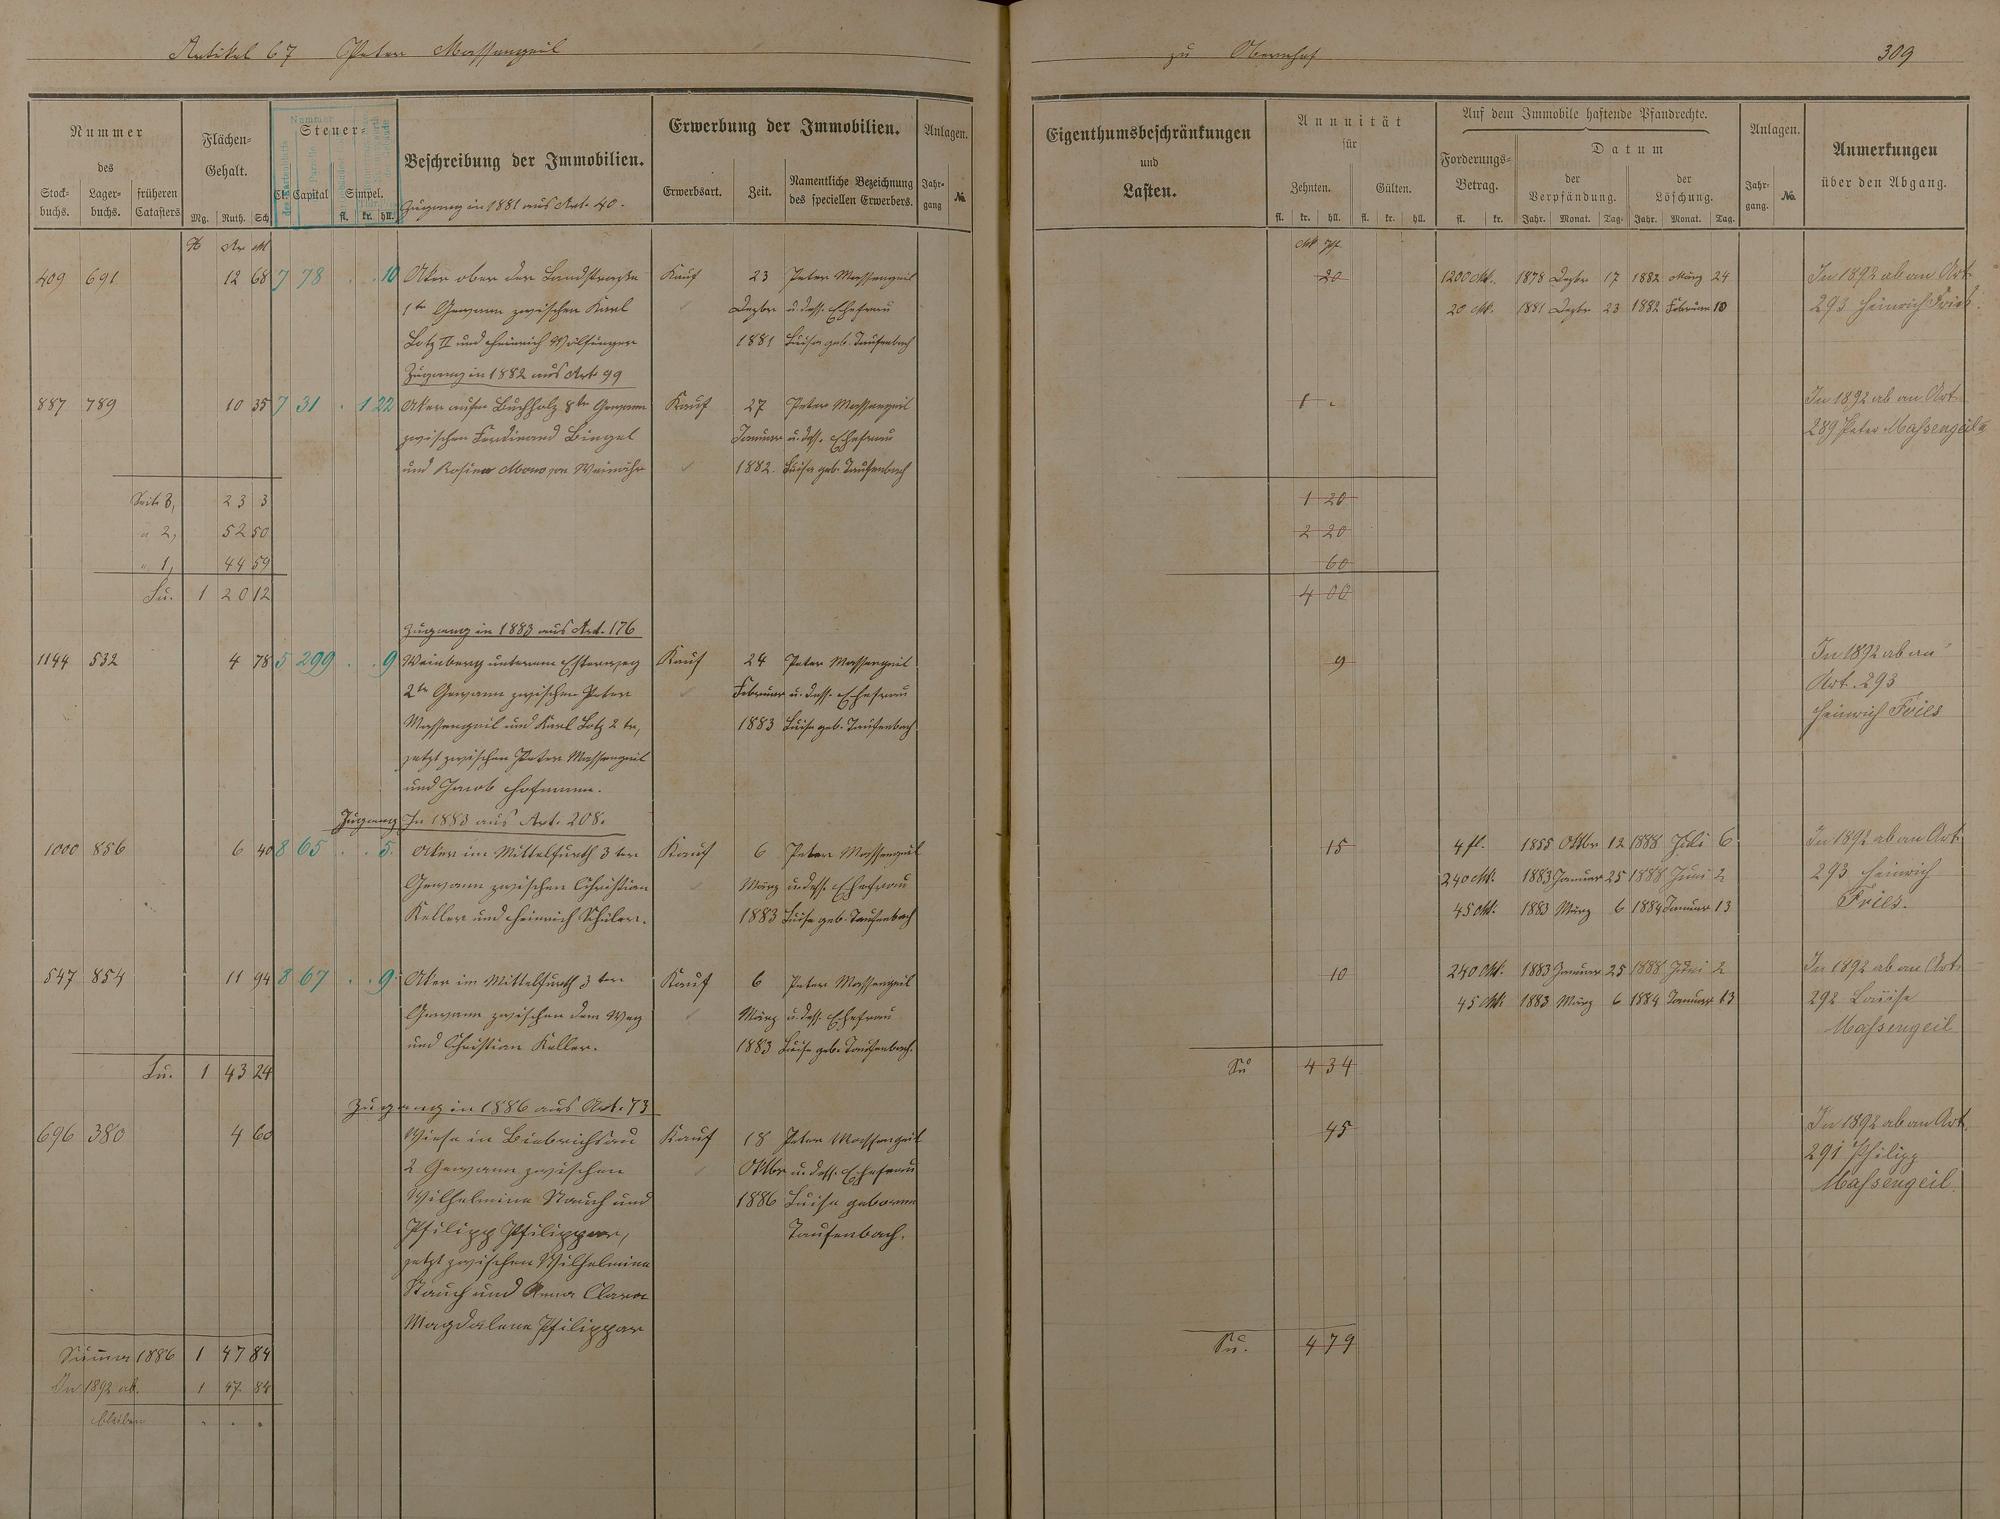 Artikel 67 Peter Massengeil
zu Obernhof
309
Nummer
des
Stock-
buchs.
Lager-
buchs.
früheren
Catasters
Flächen-
Gehalt.
Mg. Ruth. Sch
Steuer-
Cl. Capital
Simpel.
fl. kr. hll.
Beschreibung der Immobilien.
Zugang in 1881 aus Art. 40.
Erwerbung der Immobilien.
Erwerbsart.
Zeit.
Namentliche Bezeichnung
des speciellen Erwerbers.
Anlagen.
Jahr-
gang
No.
Eigenthumsbeschränkungen
und
Lasten.
Annuität
für
Zehnten.
Gülten.
fl. kr. hll. fl. kr. hll.
Auf dem Immobile haftende Pfandrechte.
Forderungs-
Betrag.
fl. kr.
Datum
der
Verpfändung.
der
Löschung.
Jahr. Monat. Tag. Jahr. Monat. Tag.
Anlagen.
Jahr-
gang.
No.
Anmerkungen
über den Abgang.
H Ar M
Mk Pf
409 691 12 68 7 78 . . 10 Aker ober der Landstraße Kauf 23 Peter Massengeil 20 1200 Mk. 1878 Dezbr 17 1882 März 24 In 1892 ab an Art.
1te Gewann zwischen Karl Dezbr u. dess. Ehefrau 20 Mk. 1881 Dezbr 23 1882 Februar 10 293 Heinrich Fries.
Lotz II und Heinrich Wülfinger 1881 Luisa geb. Taufenbach
Zugang in 1882 aus Art. 99
887 789 10 35 7 31 . 1 22 Aker aufm Buchholz 8te Gewann Kauf 27 Peter Massengeil 1 . In 1892 ab an Art.
zwischen Ferdinand Bingel Januar u. dess. Ehefrau 289 Peter Massengeil
und Rosina von Weinähr 1882. Luisa geb. Taufenbach
Seite 3, 23 3 1 20
" 2, 52 50 2 20
" 1, 44 59 60
Su. 1 20 12 4 00
Zugang in 1883 aus Art. 176
1144 532 4 78 5 299 . . 9 Weinberg unterem Kauf 24 Peter Massengeil 9 In 1892 ab an
2te Gewann zwischen Peter Februar u. dess. Ehefrau Art. 293
Massengeil und Karl Lotz 2te, 1883 Luise geb. Taufenbach Heinrich Fries
jetzt zwischen Peter Massengeil
und Jacob Hofmann.
Zugang In 1883 aus Art. 208.
1000 856 6 40 8 65 . . 5. Aker im Mittelfurth 3ter Kauf 6 Peter Massengeil 15 4 fl. 1855 Oktbr 12 1888 Juli 6 In 1892 ab an Art.
Gewann zwischen Christian März u. dess. Ehefrau 240 Mk. 1883 Januar 25 1888 Juni 2 293 Heinrich
Keller und Heinrich Schüler. 1883 Luise geb. Taufenbach 45 Mk. 1883 März 6 1884 Januar 13 Fries.
547 854 11 94 8 67 . . 9. Aker im Mittelfurth 3ter Kauf 6 Peter Massengeil 10 240 Mk. 1883 Januar 25 1888 Juni 2 In 1892 ab an Art.
Gewann zwischen dem Weg März u. dess. Ehefrau 45 Mk. 1883 März 6 1884 Januar 13 292 Luise
und Christian Keller. 1883 Luise geb. Taufenbach. Massengeil
Su. 1 43 24 Su 4 34
Zugang in 1886 aus Art. 73
696 380 4 60 Wiese in Biebrichsau Kauf 18 Peter Massengeil 45 In 1892 ab an Art.
2 Gewann zwischen Oktbr u. dess. Ehefrau 291 Philipp
Wilhelmine Stauch und 1886 Luise geborene Massengeil
Philipp Philippar, Taufenbach.
jetzt zwischen Wilhelmine
Stauch und Anna Clara
Magdalene Philippar
Summa 1886 1 47 84 Su. 4 79
In 1892 ab. 1 47 84
bleiben . . .